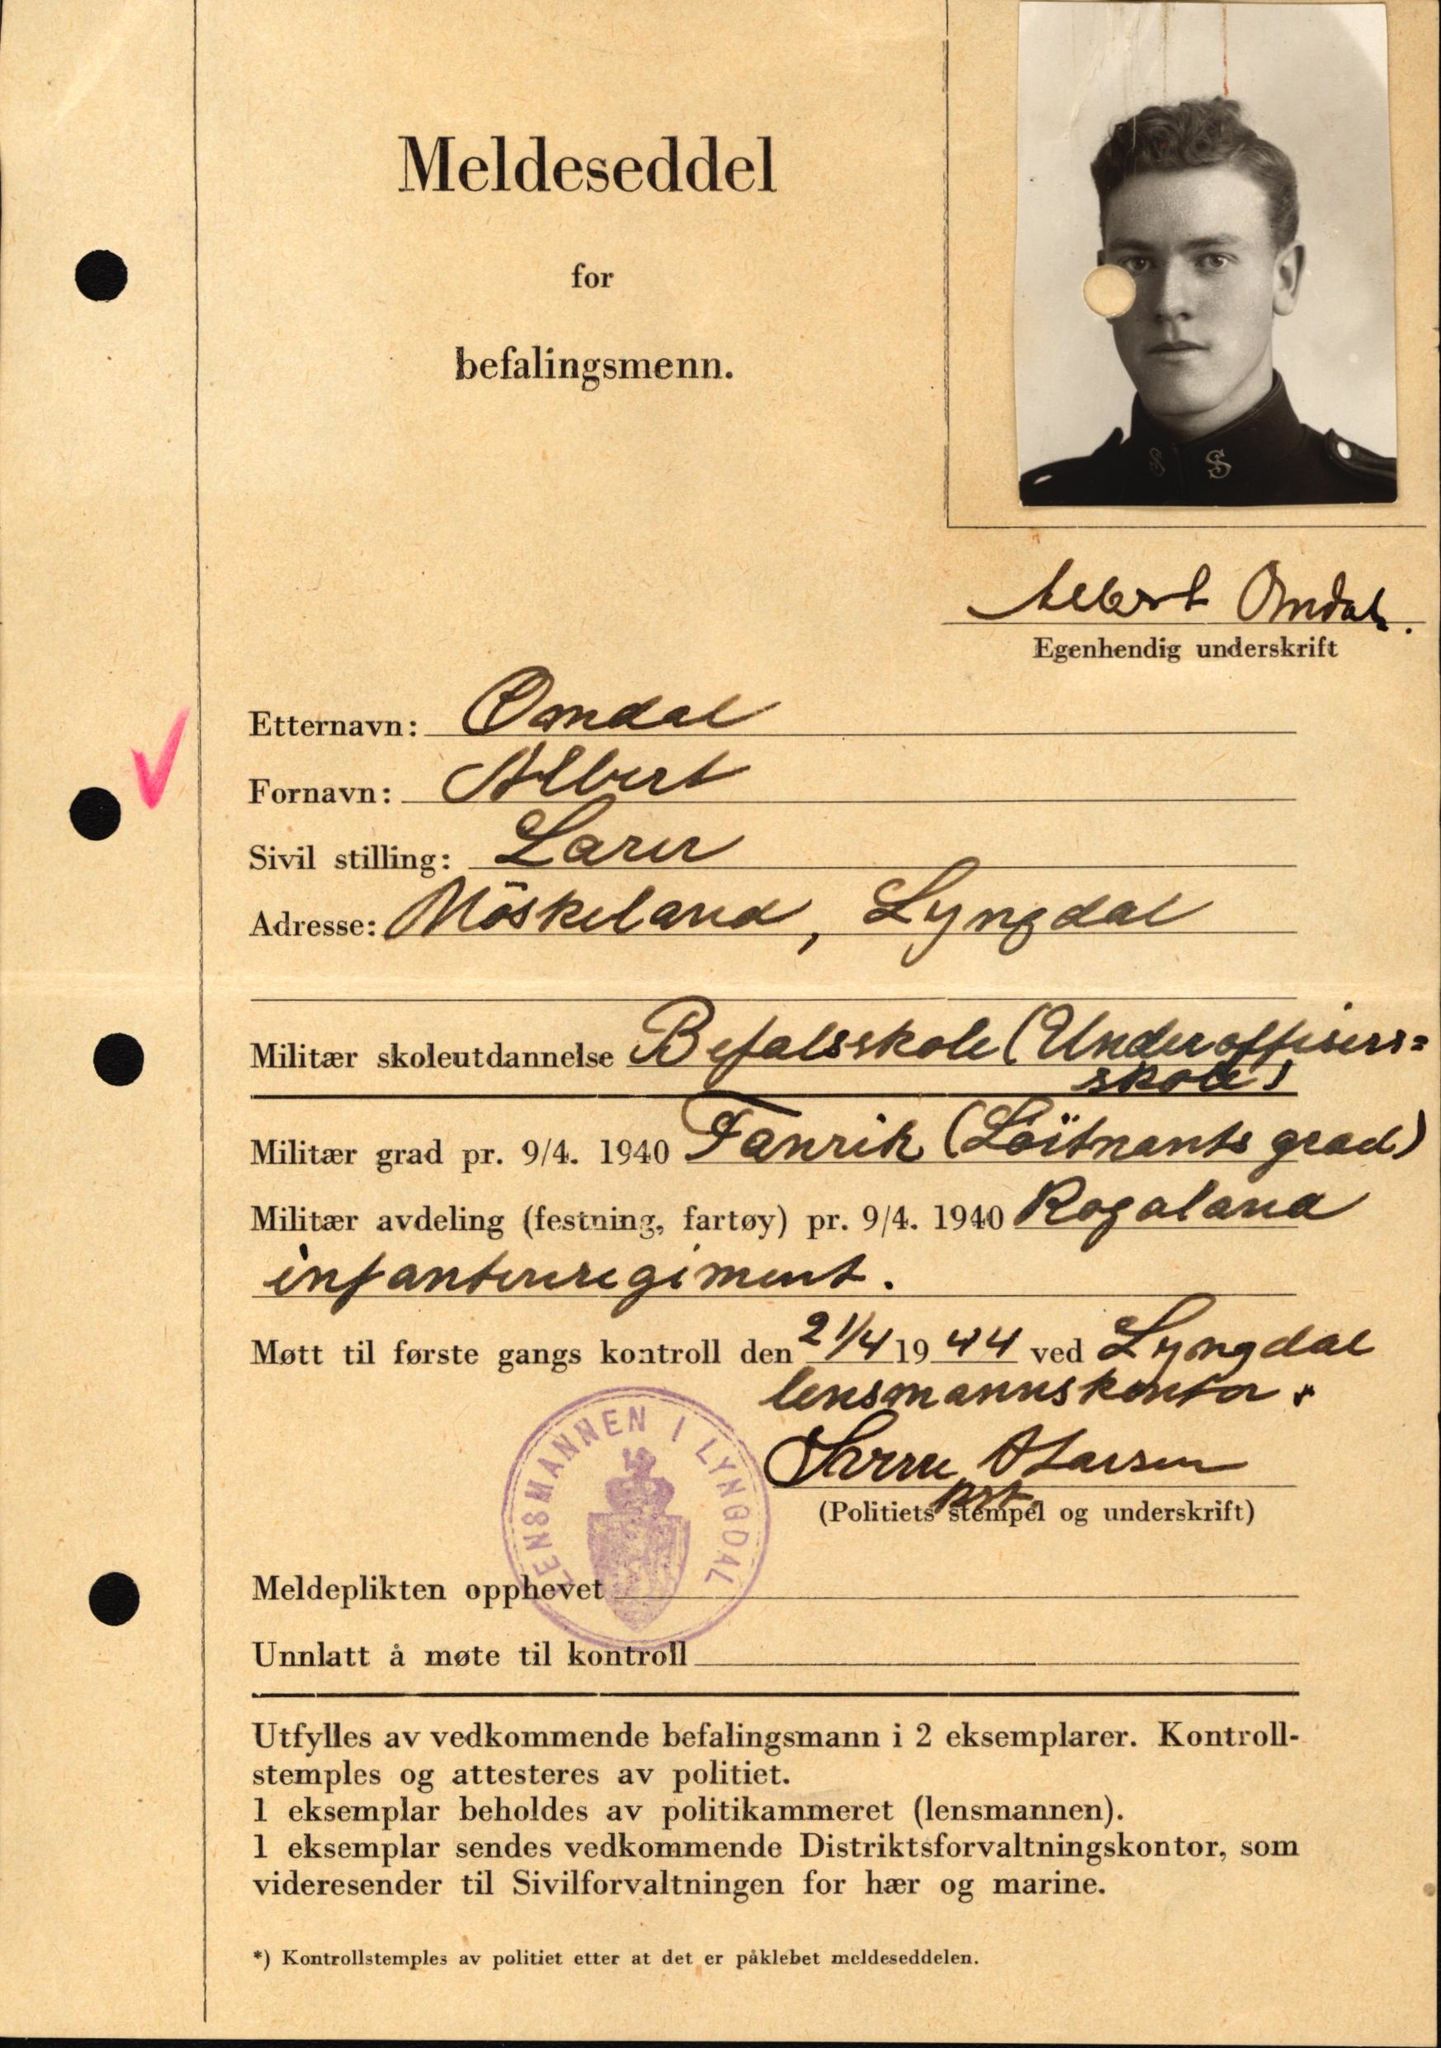 Meldeseddel
for
befalingsmenn.
S S
Albert Omdal.
Egenhendig underskrift
Etternavn: Omdal
Fornavn: Albert
Sivil stilling: Lærer
Adresse: Möskeland, Lyngdal
Militær skoleutdannelse Befalsskole (Underoffisers=
skole)
Militær grad pr. 9/4. 1940 Fenrik (Löitnants grad)
Militær avdeling (festning, fartøy) pr. 9/4. 1940 Rogaland
infanteriregiment.
Møtt til første gangs kontroll den 21/4 1944 ved Lyngdal
lensmannskontor.
Sverre Larsen
(Politiets stempel og underskrift)
LENSMANNEN I LYNGDAL
Meldeplikten opphevet
Unnlatt å møte til kontroll
Utfylles av vedkommende befalingsmann i 2 eksemplarer. Kontroll-
stemples og attesteres av politiet.
1 eksemplar beholdes av politikammeret (lensmannen).
1 eksemplar sendes vedkommende Distriktsforvaltningskontor, som
videresender til Sivilforvaltningen for hær og marine.
*) Kontrollstemples av politiet etter at det er påklebet meldeseddelen.